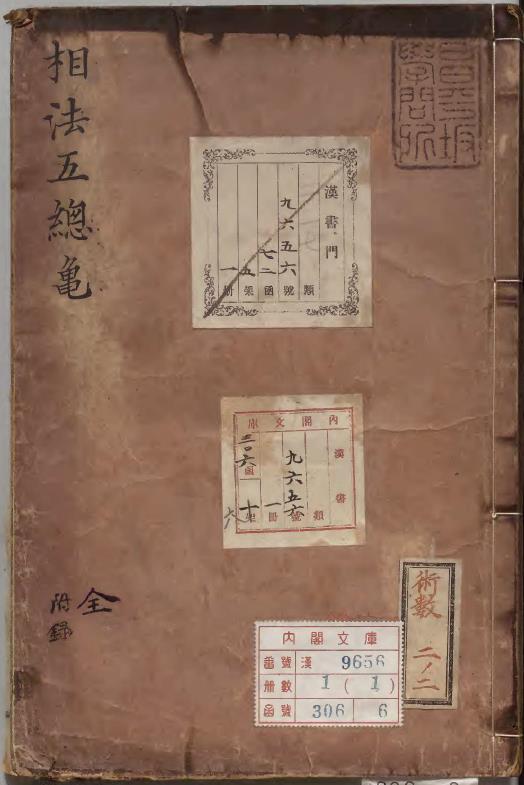 相法五總亀
全
附録
昌平坂
學問所
漢書門
類
九六五六號
七二函
五架
一冊
內閣文庫
漢書
類
九六五六號
一冊
三〇六函
十架
六
術數 二ノ二
內閣文庫
番號 漢 9656
册數 1 (1)
函號 306 6